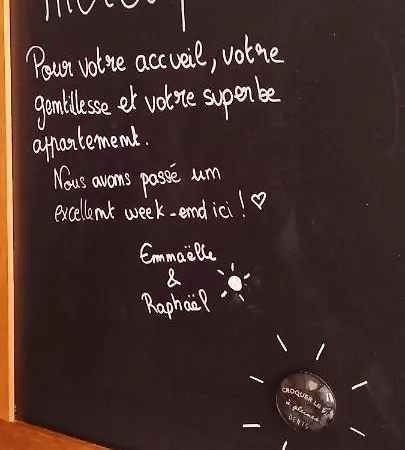 Pour votre accueil, votre
gentillesse et votre superbe
appartement.
Nous avons passé un
excellent week-end ici ! ♡
Emmaëlle
&
Raphaël
CROQUER LA
à pleines
DENTS